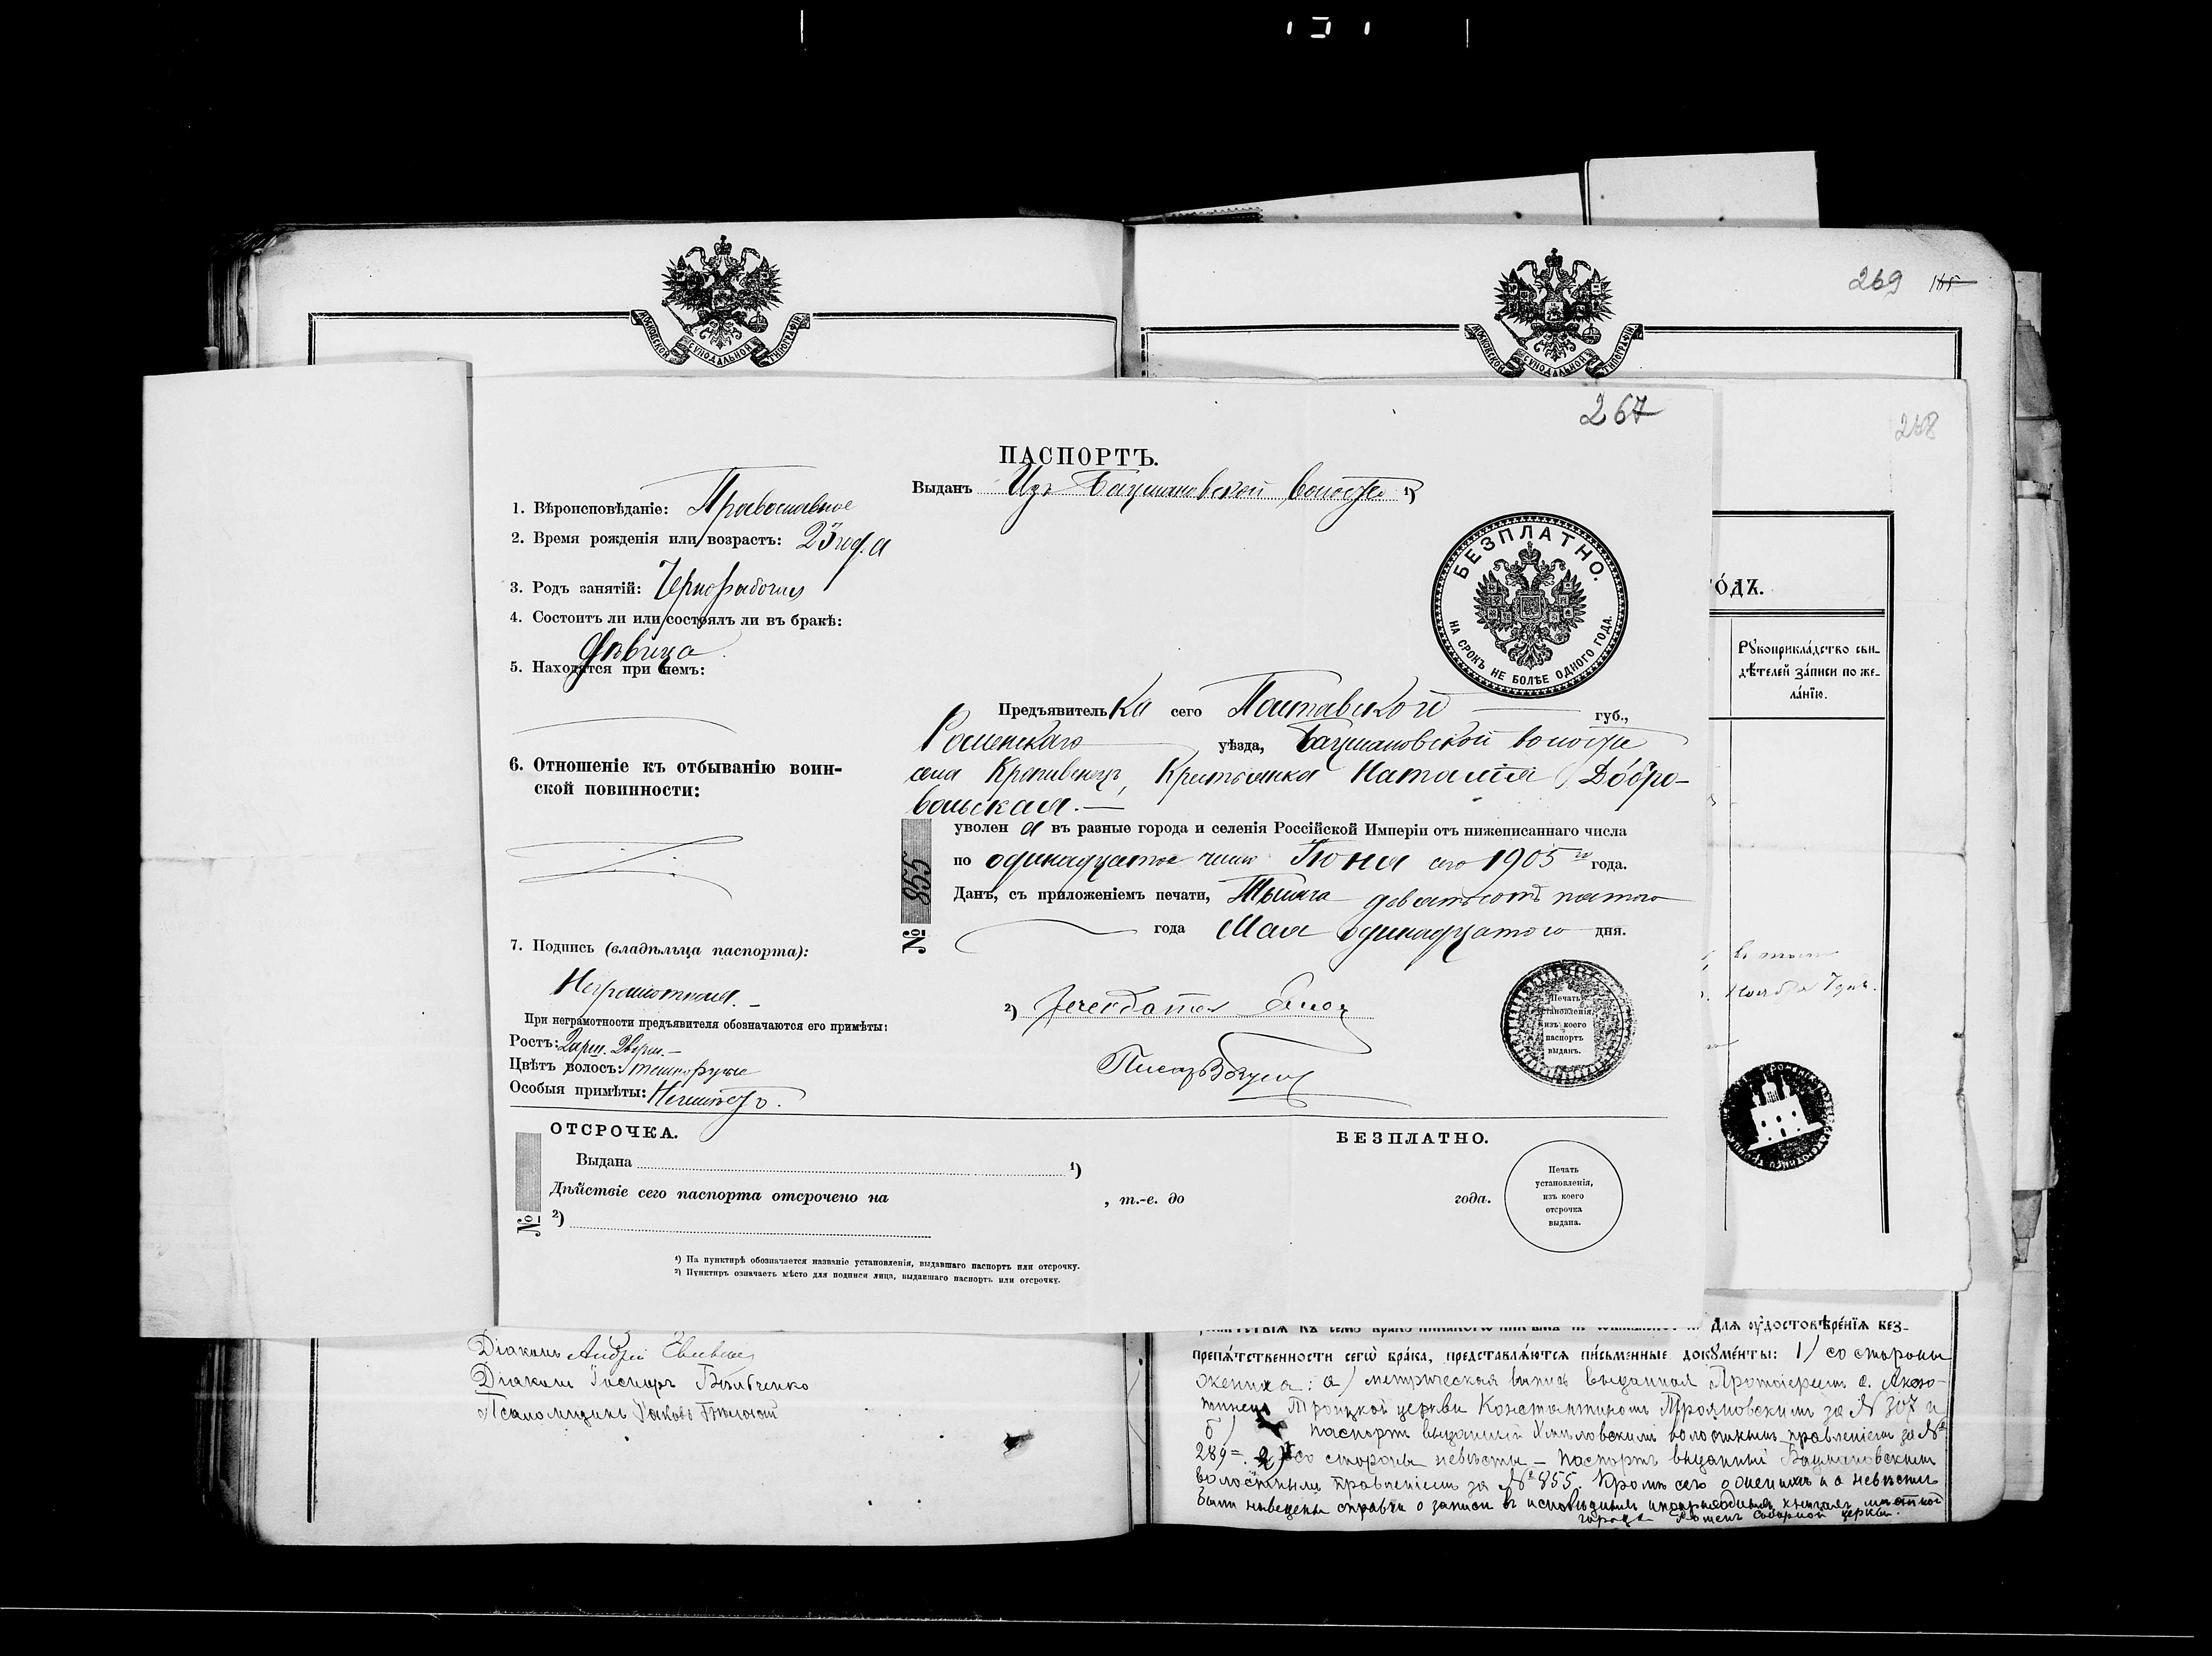 МОСКОВСКОЙ СУНОДАЛЬНОЙ ТИПОГРАФІИ
МОСКОВСКОЙ СУНОДАЛЬНОЙ ТИПОГРАФІИ
269
267
268
ПАСПОРТЪ.
Выданъ Изъ Бацмановской волости ¹)
1. Вѣроисповѣданіе: Православное
2. Время рожденія или возрастъ: 23 года
3. Родъ занятій: Чернорабочая
4. Состоитъ ли или состоялъ ли въ бракѣ:
Дѣвица
5. Находятся при немъ:
6. Отношеніе къ отбыванію воин-
ской повинности:
7. Подпись (владѣльца паспорта):
Неграмотная.
При неграмотности предъявителя обозначаются его примѣты:
Ростъ: 2 арш. 2 верш.
Цвѣтъ волосъ: темнорусые
Особыя примѣты:
БЕЗПЛАТНО.
НА СРОКЪ НЕ БОЛѢЕ ОДНОГО ГОДА.
Предъявителька сего Полтавской губ.,
Роменскаго уѣзда, Бацмановской волости
села Крапивенцъ, Крестьянка Наталія Добро-
вольская.
уволена въ разные города и селенія Россійской Имперіи отъ нижеписаннаго числа
по одинадцатое число Іюня сего 1905 го года.
Данъ, съ приложеніемъ печати, Тысяча девятьсотъ пятого
года Мая одинадцатого дня.
№ 855
²)
Писарь
Печать
установленія,
изъ коего
паспортъ
выданъ.
ОТСРОЧКА.
БЕЗПЛАТНО.
Выдана ¹)
Дѣйствіе сего паспорта отсрочено на , т.-е. до года.
№ ²)
Печать
установленія,
изъ коего
отсрочка
выдана.
¹) На пунктирѣ обозначается названіе установленія, выдавшаго паспортъ или отсрочку.
²) Пунктиръ означаетъ мѣсто для подписи лица, выдавшаго паспортъ или отсрочку.
О́ДЪ.
Рꙋкоприкла́дство сви-
дѣ́телей за́писи по же-
ла́нїю.
Ноября 7 дня.
Діаконъ Андрей
Діаконъ
Псаломщикъ Яковъ
Для ᲂу҆достовѣре́нїѧ без-
препѧ́тственности сегѡ̀ бра́ка, представлѧ́ются пи́сьменные докꙋме́нты: 1) со стороны
жениха: а) метрическая выпись выданная Протоіереемъ с.
Троицкой церкви Константиномъ Трояновскимъ за № 307 и
б) паспортъ выданный Хмѣловскимъ волостнымъ правленіемъ за №
289 2) со стороны невѣсты — паспортъ выданный Бацмановскимъ
волостнымъ правленіемъ за № 855. Кромѣ сего о женихѣ и о невѣстѣ
были наведены справки о записи въ исповѣдныхъ книгахъ мѣстной
города Ромен Соборной церкви.